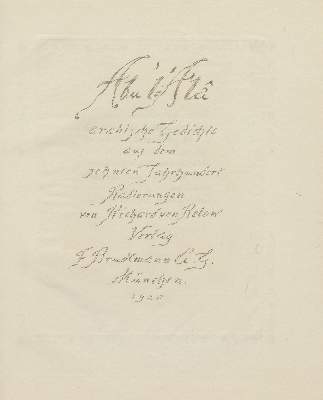 Abu'l-Alâ
arabische Gedichte
aus dem
zehnten Jahrhundert
Radierungen
von Richard von Below
Verlag
F. Bruckmann A. G.
München.
1920